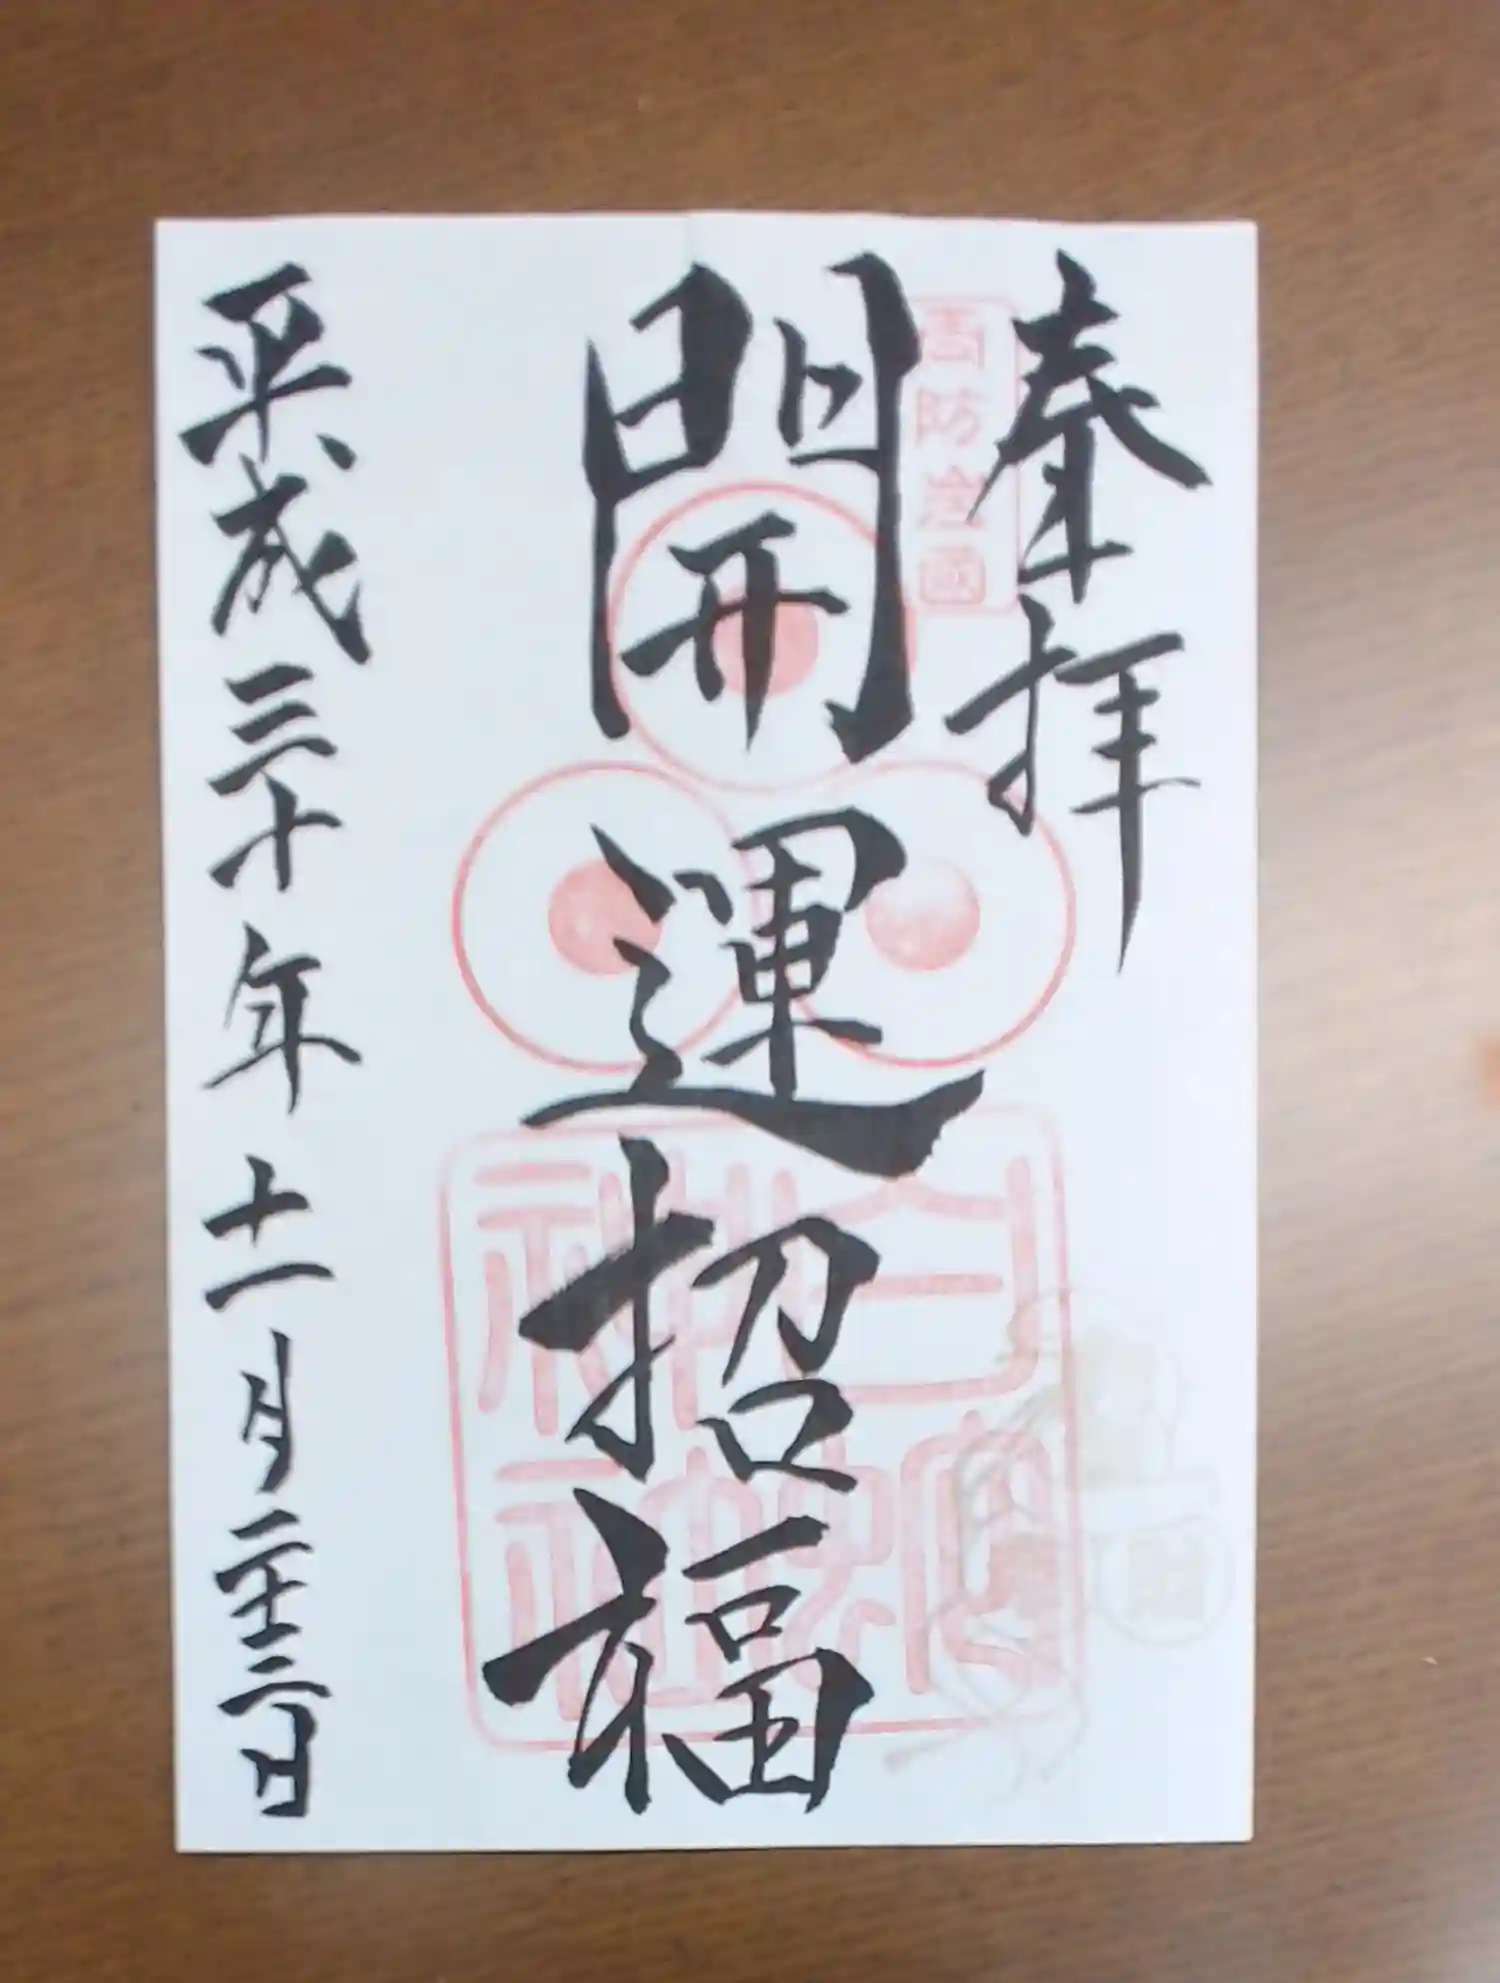 奉拝
周防岩國
開運招福
白蛇神社
平成三十年十一月二十三日